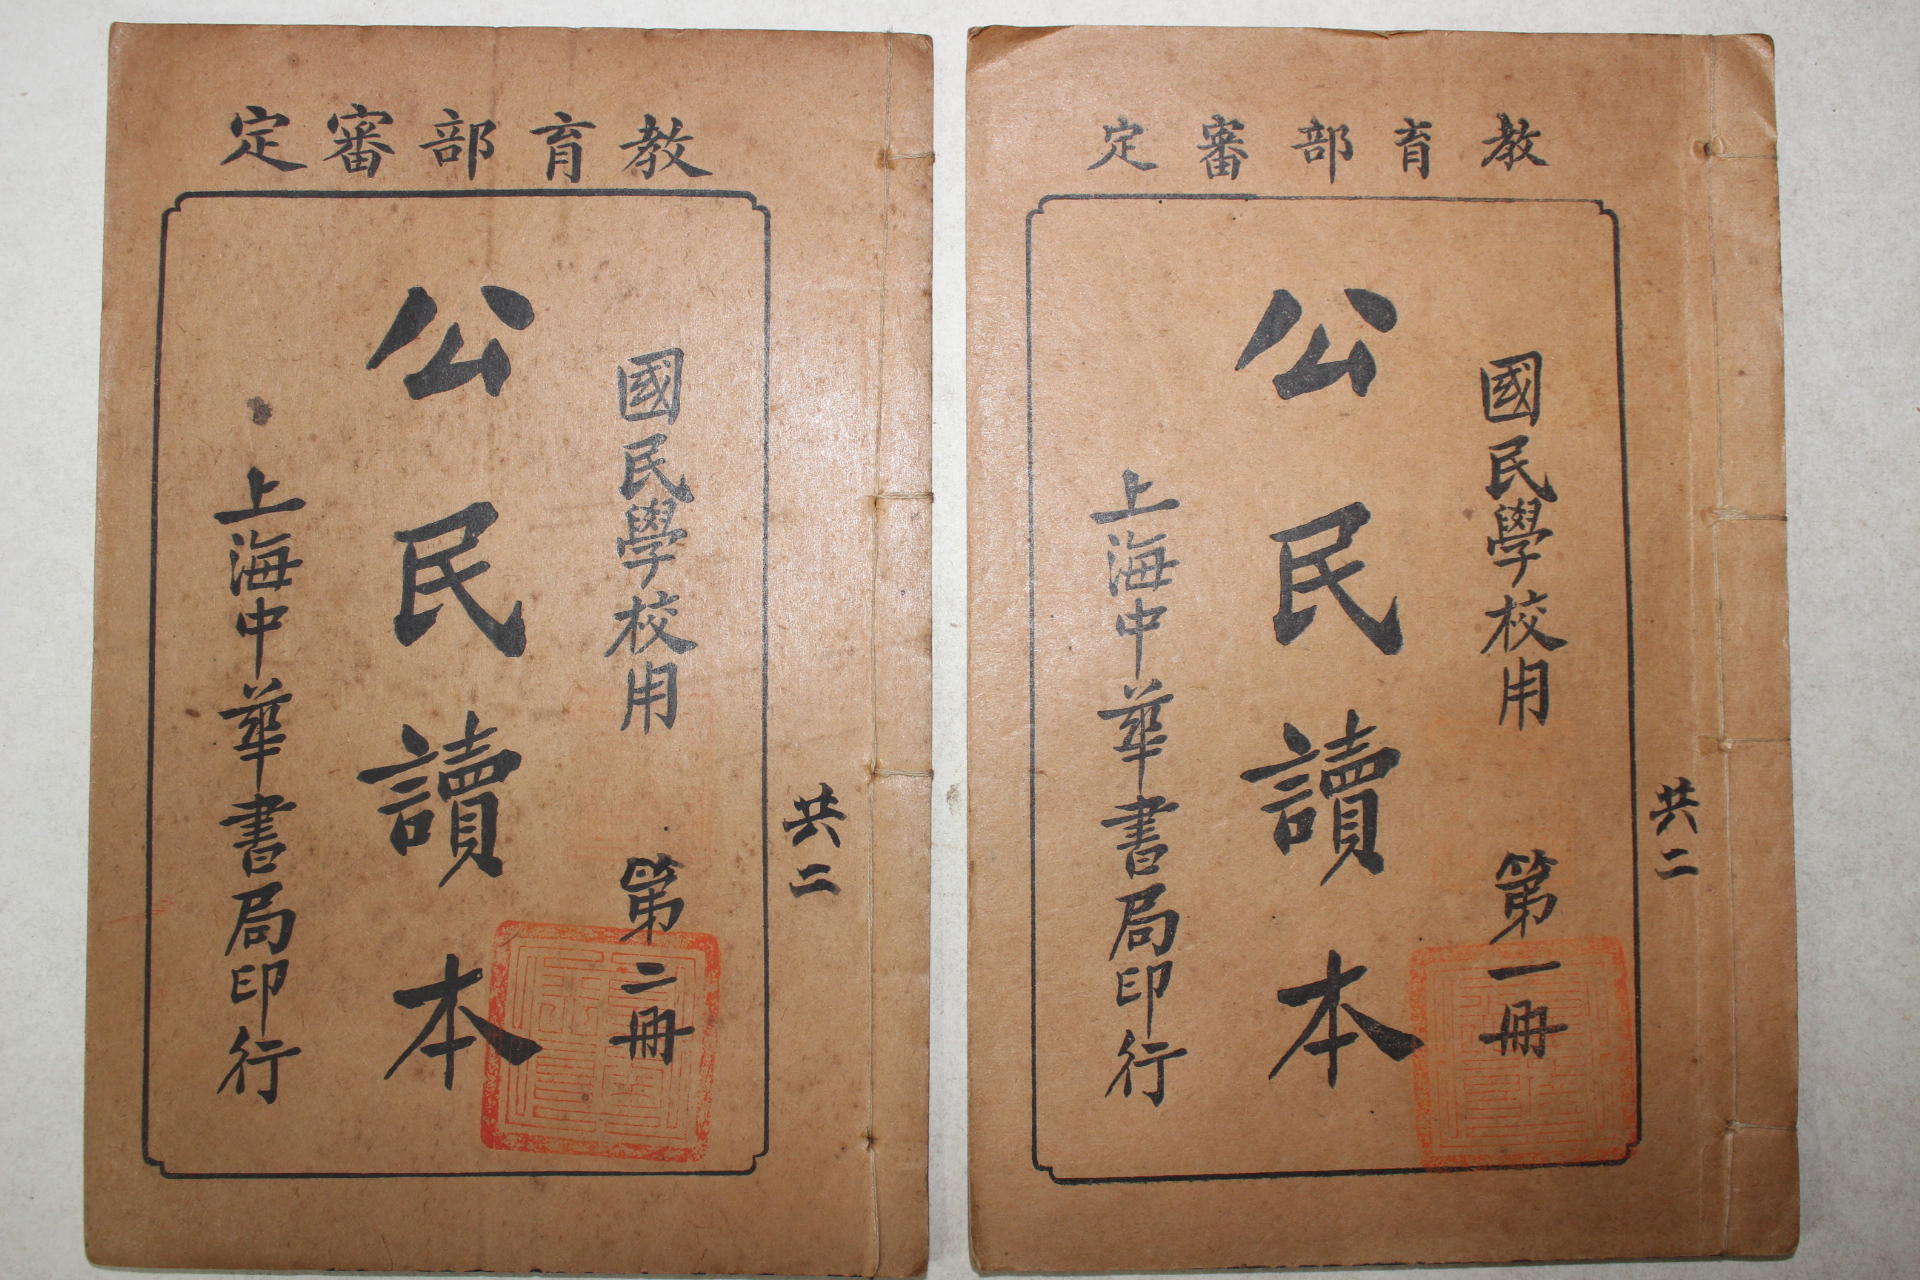 教育部審定
國民學校用 第一冊
公民讀本
上海中華書局印行
共二
教育部審定
國民學校用 第二冊
公民讀本
上海中華書局印行
共二